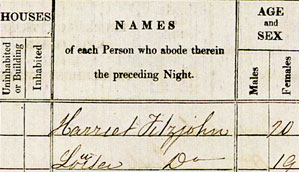 HOUSES
Uninhabited or Building
Inhabited
NAMES
of each Person who abode therein
the preceding Night.
AGE and SEX
Males
Females
Harriet Fitzjohn 20
Louisa Do 19